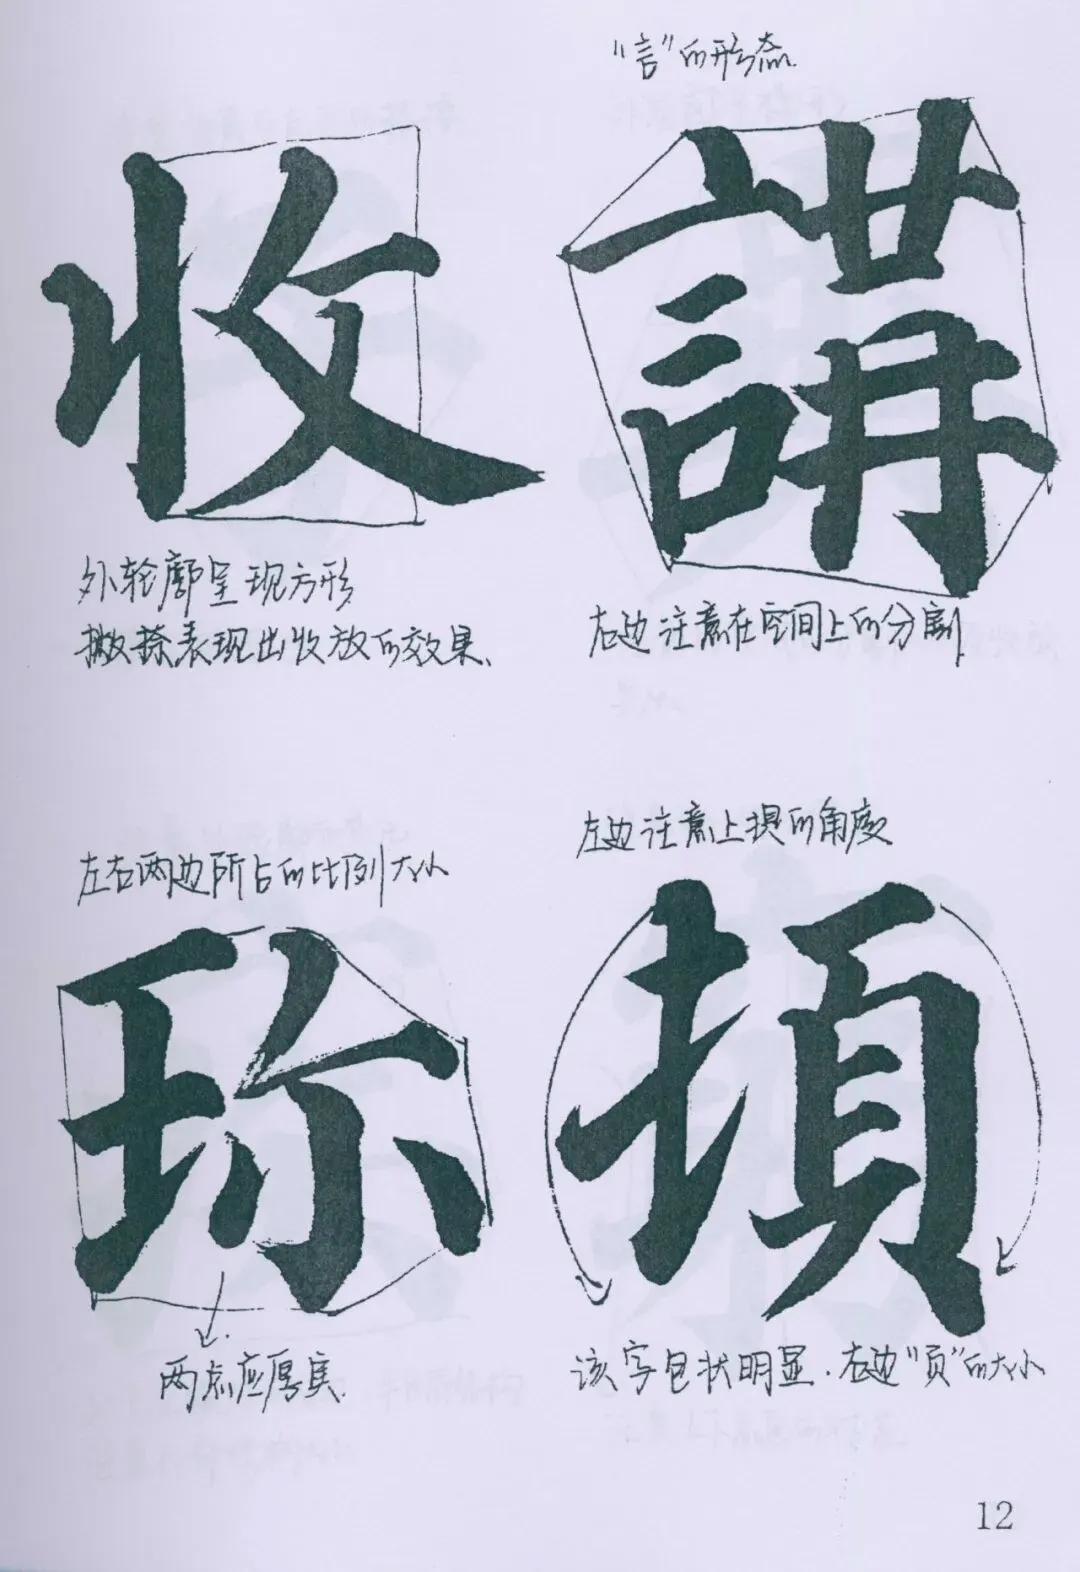 收
外轮廓呈现方形
撇捺表现出收放的效果、
“言”的形态
講
右边注意在空间上的分割
左右两边所占的比例大小
珎
两点应厚实
左边注意上提的角度
该字包状明显.右边“页”的大小
12